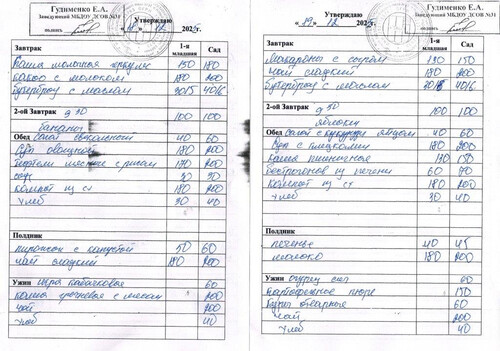 Гудименко Е.А.
Заведующий МБДОУ ДСОВ №31
Утверждаю
«18» 12 2025г
Завтрак
1-я младшая
Сад
Каша молочная геркулес 150 180
какао с молоком 180 200
бутерброд с маслом 30/5 40/6
2-ой Завтрак 9 30 100 100
бананы
Обед Салат свекольный 40 60
Суп овощной 180 200
с рисом 170 200
соус 30 30
компот из с/ф 180 200
хлеб 30 40
Полдник
пирожок с капустой 50 60
чай сладкий 180 200
Ужин икра кабачковая 60
каша гречневая с мясом 200
чай 200
хлеб 40
Гудименко Е.А.
Заведующий МБДОУ ДСОВ №31
Утверждаю
«19» 12 2025г
Завтрак
1-я младшая
Сад
Макароны с сыром 130 150
чай сладкий 180 200
бутерброд с маслом 30/5 40/6
2-ой Завтрак 9 30 100 100
яблоки
Обед Салат с кукурузы яйцом 40 60
Суп с клецками 180 200
Каша пшеничная 130 150
бефстроганов из печени 60 70
Компот из с/ф 180 200
хлеб 30 40
Полдник
печенье 40 45
молоко 180 200
Ужин огурец сол 60
Картофельное пюре 150
отварные 60
чай 200
хлеб 40